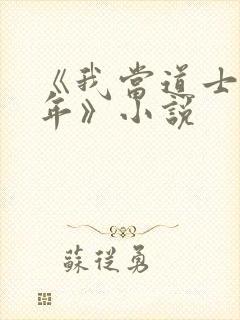 《我當道士
年》小說
蘇從勇